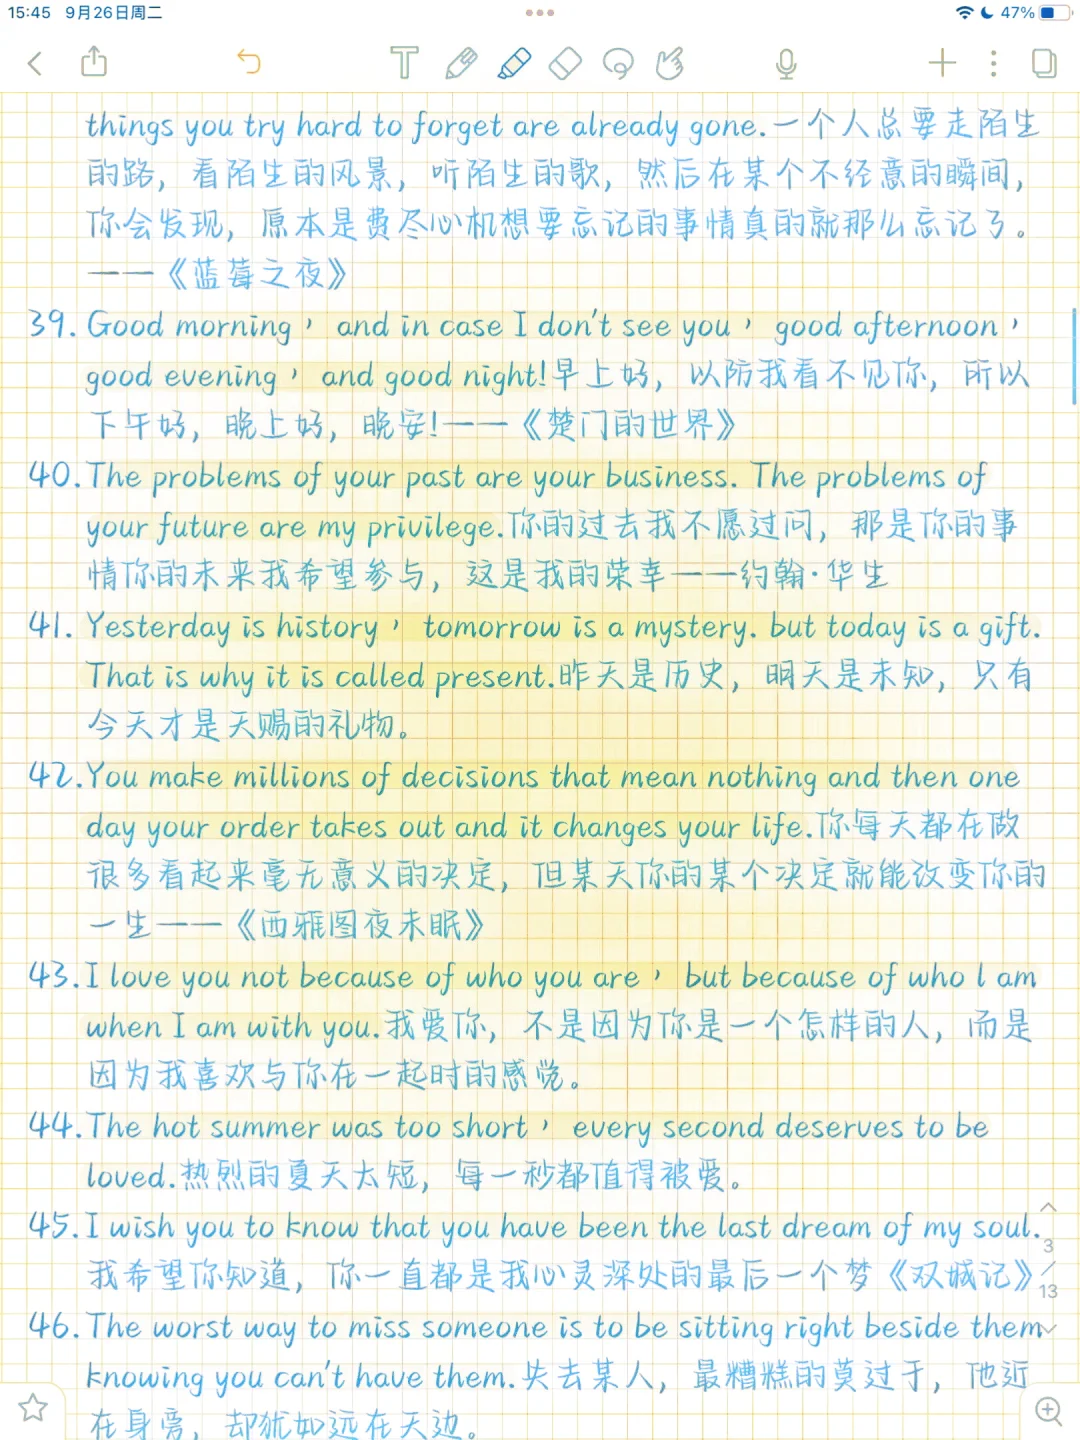 15:45 9月26日周二
47%
things you try hard to forget are already gone.一个人总要走陌生
的路，看陌生的风景，听陌生的歌，然后在某个不经意的瞬间，
你会发现，原本是费尽心机想要忘记的事情真的就那么忘记了。
——《蓝莓之夜》
39. Good morning， and in case I don't see you， good afternoon，
good evening， and good night!早上好，以防我看不见你，所以
下午好，晚上好，晚安!——《楚门的世界》
40. The problems of your past are your business. The problems of
your future are my privilege.你的过去我不愿过问，那是你的事
情你的未来我希望参与，这是我的荣幸——约翰·华生
41. Yesterday is history， tomorrow is a mystery. but today is a gift.
That is why it is called present.昨天是历史，明天是未知，只有
今天才是天赐的礼物。
42. You make millions of decisions that mean nothing and then one
day your order takes out and it changes your life.你每天都在做
很多看起来毫无意义的决定，但某天你的某个决定就能改变你的
一生——《西雅图夜未眠》
43. I love you not because of who you are， but because of who l am
when I am with you.我爱你，不是因为你是一个怎样的人，而是
因为我喜欢与你在一起时的感觉。
44. The hot summer was too short， every second deserves to be
loved.热烈的夏天太短，每一秒都值得被爱。
45. I wish you to know that you have been the last dream of my soul.
我希望你知道，你一直都是我心灵深处的最后一个梦《双城记》
3/13
46. The worst way to miss someone is to be sitting right beside them
knowing you can't have them.失去某人，最糟糕的莫过于，他近
在身旁，却犹如远在天边。